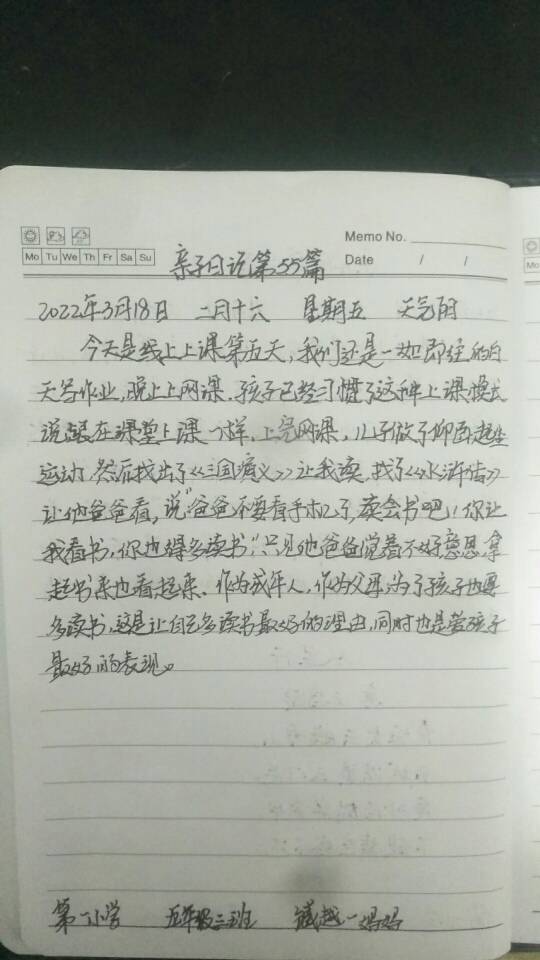 Memo No.
Mo Tu We Th Fr Sa Su
Date / /
亲子日记第55篇
2022年3月18日 二月十六 星期五 天气阴
今天是线上上课第五天,我们还是一如即往的白
天写作业,晚上上网课.孩子已经习惯了这种上课模式
说跟在课堂上课一样,上完网课,儿子做了仰卧起坐
运动.然后找出了《三国演义》让我读,找了《水浒传》
让他爸爸看,说“爸爸不要看手机了,读会书吧!你让
我看书,你也得多读书”只见他爸爸觉着不好意思,拿
起书来也看起来、作为成年人,作为父母,为了孩子也要
多读书,这是让自己多读书最好的理由,同时也是爱孩子
最好的表现。
第一小学 五年级三班 越一妈妈
Mo